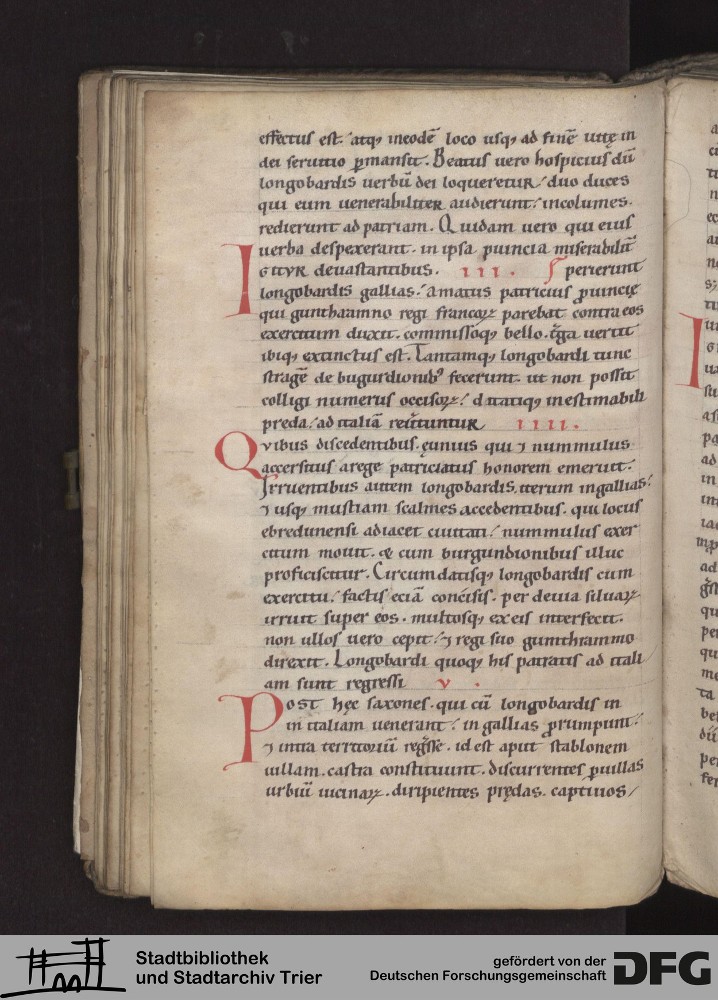 effectus est. atq; in eodē loco usq; ad finē uitę in
dei seruitio ꝑmansit. Beatus uero hospicius dū
longobardis uerbū dei loqueretur / duo duces
qui eum uenerabiliter audierunt / incolumes.
redierunt ad patriam. Quidam uero qui eius
uerba despexerant. in ipsa ꝓuincia miserabilit̄
Igitur deuastantibus. III. pererunt
longobardis gallias. Amatus patricius ꝓuincię
qui gunthramno regi francoꝝ parebat contra eos
exercitum duxit. commissoq; bello. t̄ga uertit
ibiq; extinctus est. Tantamq; longobardi tunc
stragē de bugurdionib; fecerunt. ut non possit
colligi numerus occisoꝝ / ditatiq; inestimabili
preda / ad italiā reūtuntur IIII.
Quibus discedentibus. ęunius qui ⁊ nummulus
accersitus a rege patriciatus honorem emeruit.
Irruentibus autem longobardis. iterum in gallias.
⁊ usq; mustiam scalmes accedentibus. qui locus
ebredunensi adiacet ciuitati / nummulus exer
citum mouit. & cum burgundionibus illuc
proficiscitur. Circumdatisq; longobardis cum
exercitu / factis eciā concisis. per deuia siluaꝝ
irruit super eos. multosq; ex eis interfecit.
non ullos uero cepit / ⁊ regi suo guntthrammo
direxit. Longobardi quoq; his patratis ad itali
am sunt regressi V.
Post hęc saxones. qui cū longobardis in
in italiam uenerant / in gallias ꝓrumpunt.
⁊ intra territoriū reg̃sse. id est aput stablonem
uillam. castra constituunt. discurrentes ꝑ uillas
urbiū uicinaꝝ. diripientes prędas. captiuos /
Stadtbibliothek
und Stadtarchiv Trier
gefördert von der
Deutschen Forschungsgemeinschaft
DFG